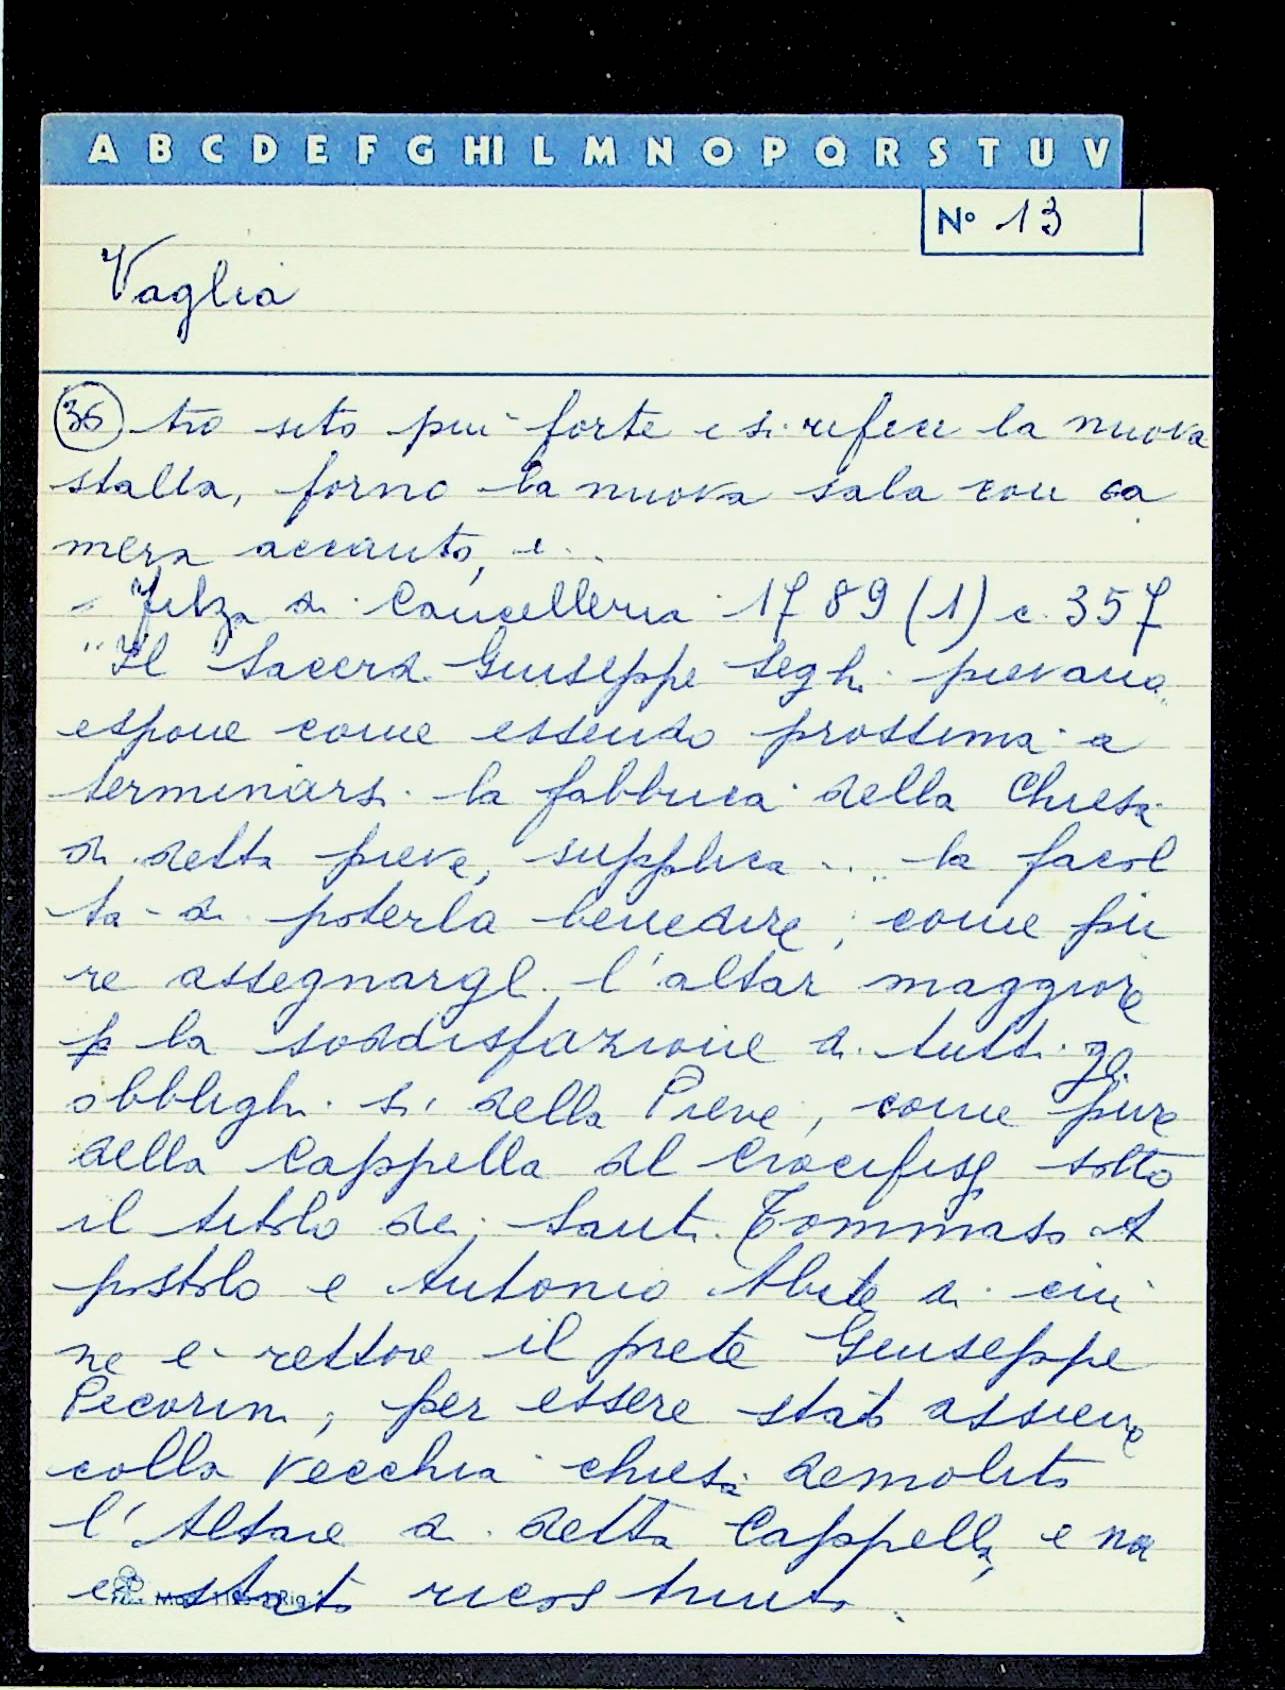 A B C D E F G HI L M N O P Q R S T U V
Nº 13
Vaglia
36 tro sito più forte e si rifece la nuova
stalla, forno la nuova sala con ca
mera accanto, e...
Filza di Cancelleria 1789 (1) c. 357
"Il Sacerd. Giuseppe Seghi pievano
espone come essendo prossima a
terminarsi la fabbrica della Chiesa
di detta pieve, supplica ... la facol
tà di poterla benedire; come pu
re assegnargli l'altar maggiore
p la soddisfazione di tutti gli
obblighi sì della Pieve, come pure
della Cappella del Crocifisso sotto
il titolo dei Santi Tommaso A
postolo e Antonio Abate di cui
ne è rettore il prete Giuseppe
Pecorini, per essere stato assieme
colla vecchia chiesa demolito
l'Altare di detta Cappella, e non
è stato ricostruito.